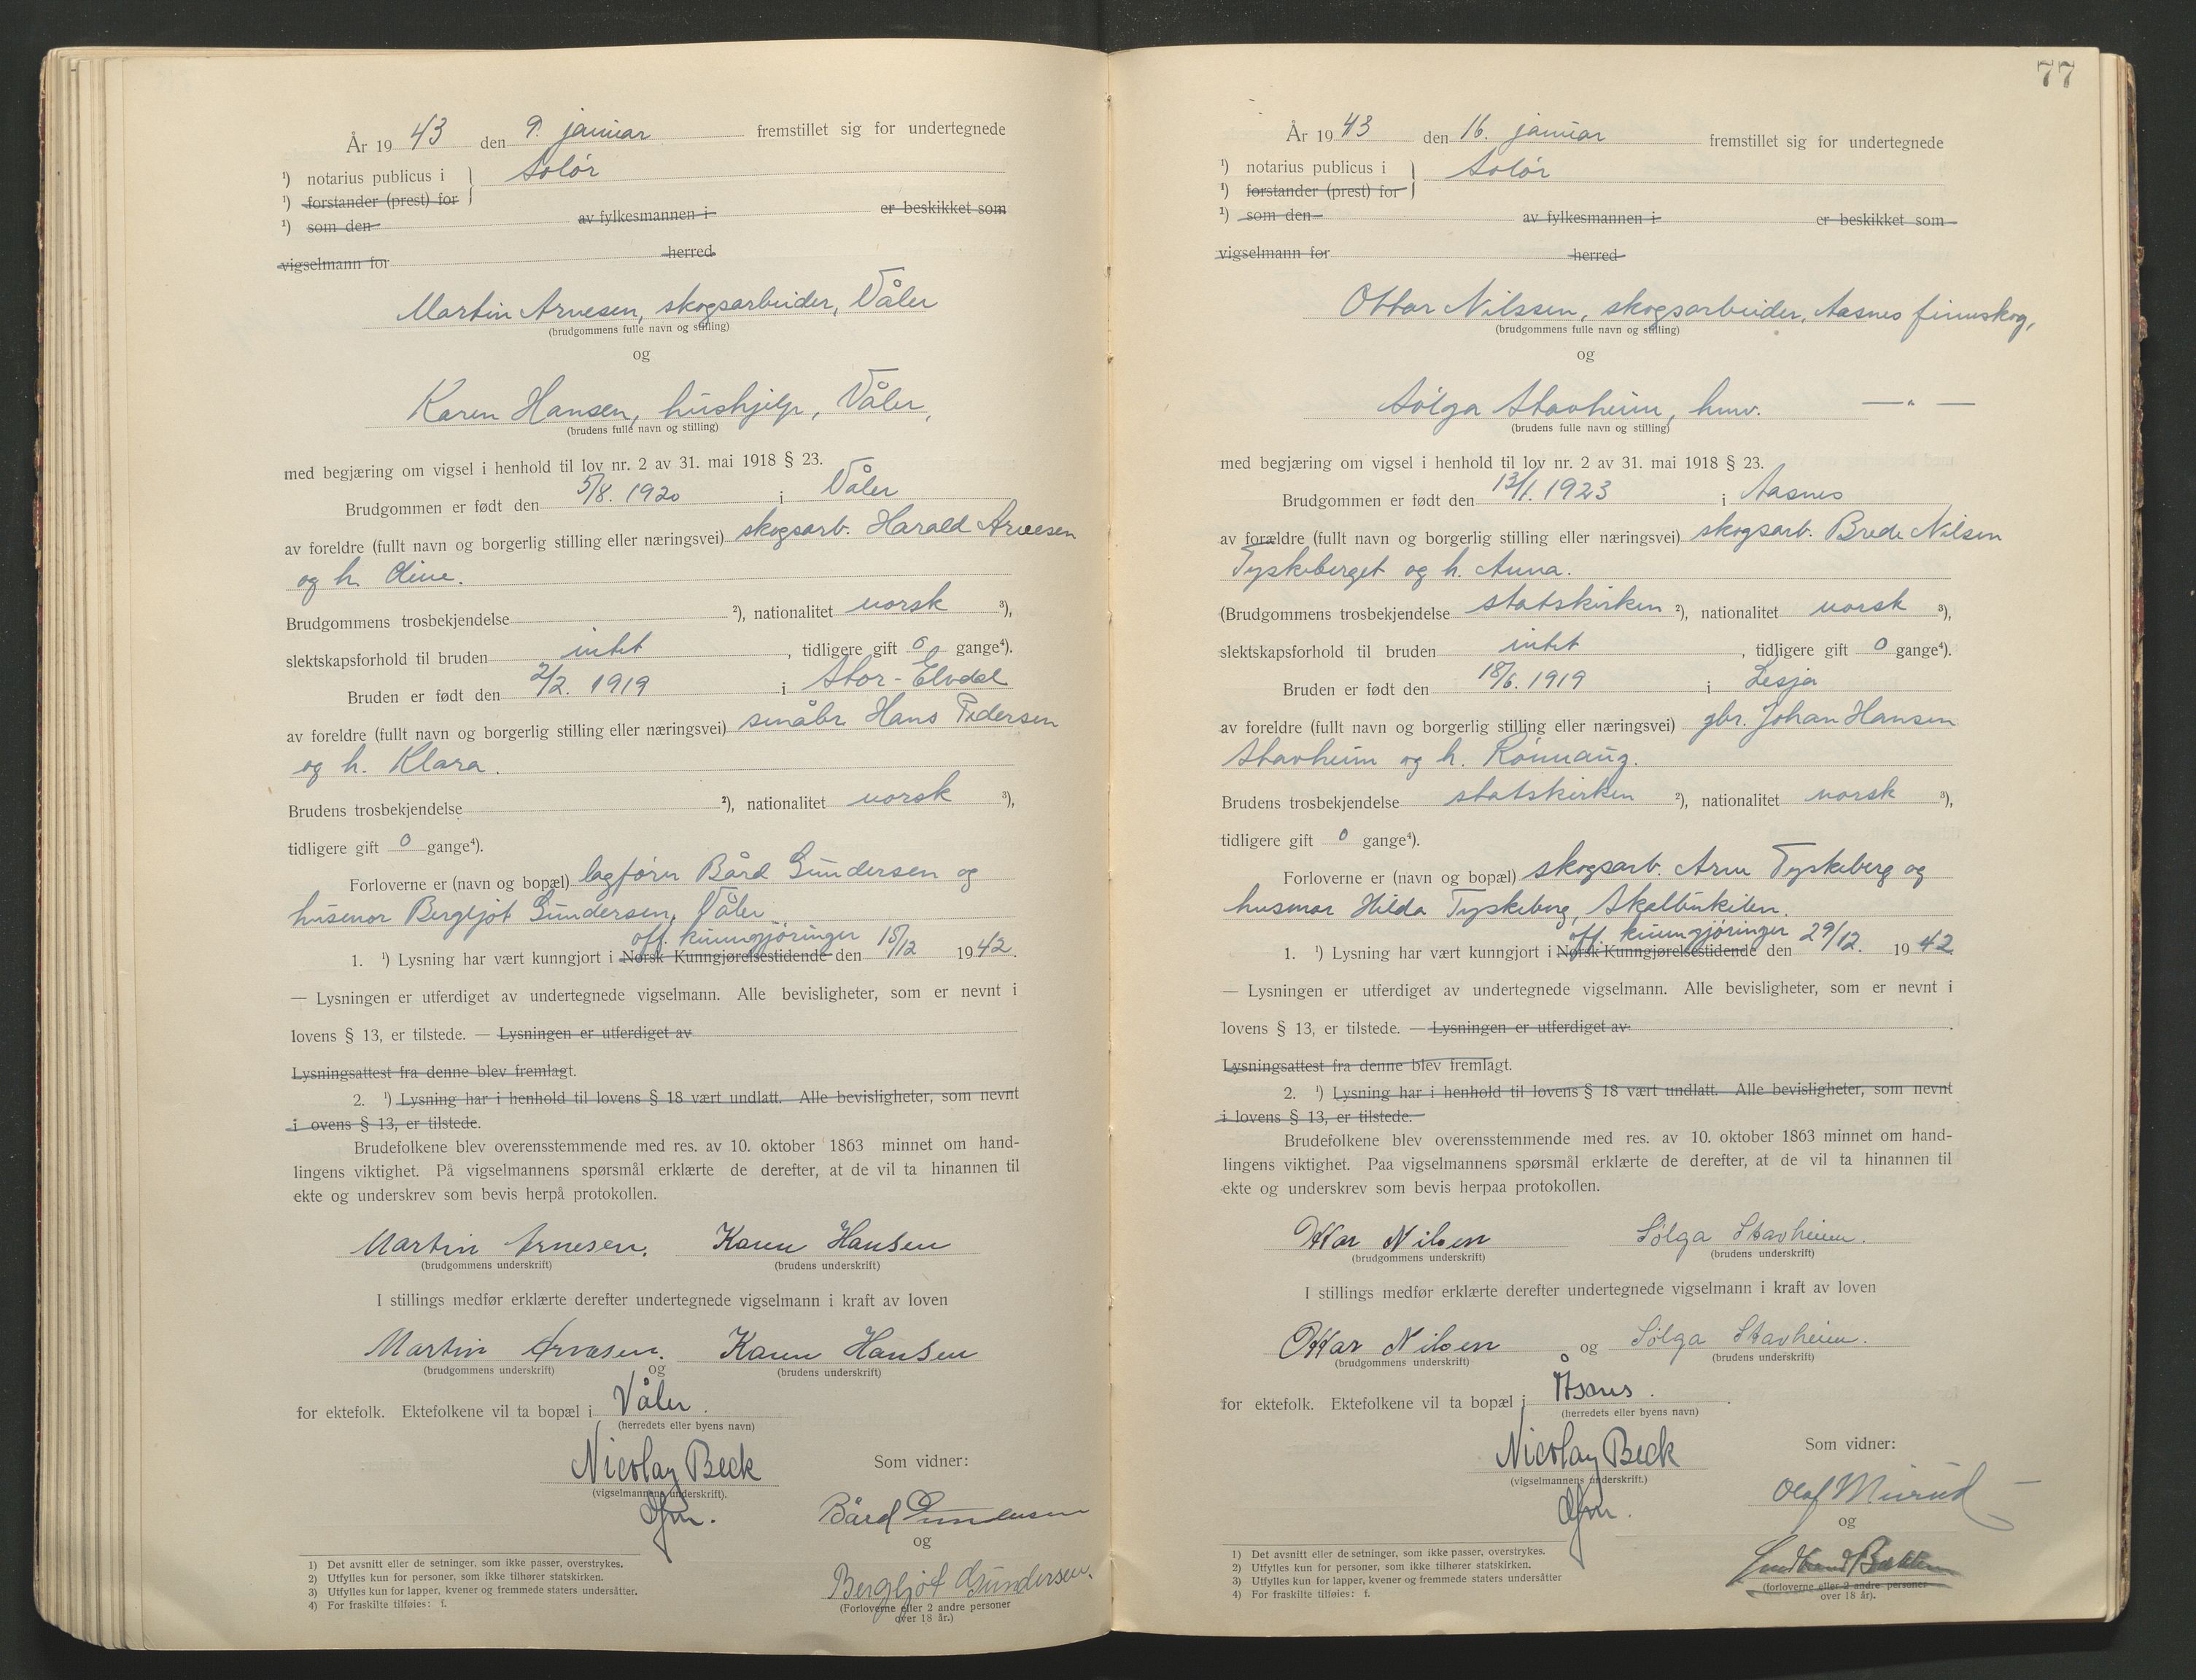 År 1943 den 9. januar fremstillet sig for undertegnede
¹) notarius publicus i } Solør
¹) forstander (prest) for
¹) som den av fylkesmannen i er beskikket som
vigselmann for herred
Martin Arnesen, skogsarbeider, Våler
(brudgommens fulle navn og stilling)
og
Karen Hansen, hushjelp, Våler,
(brudens fulle navn og stilling)
med begjæring om vigsel i henhold til lov nr. 2 av 31. mai 1918 § 23.
Brudgommen er født den 5/8. 1920 i Våler
av foreldre (fullt navn og borgerlig stilling eller næringsvei) skogsarb. Harald Arnesen
og h. Oline.
Brudgommens trosbekjendelse ²), nationalitet norsk ³),
slektskapsforhold til bruden intet , tidligere gift 0 gange⁴).
Bruden er født den 2/2. 1919 i Stor-Elvdal
av foreldre (fullt navn og borgerlig stilling eller næringsvei) småbr. Hans Pedersen
og h. Klara.
Brudens trosbekjendelse ²), nationalitet norsk ³),
tidligere gift 0 gange⁴).
Forloverne er (navn og bopæl) lagfører Bård Gundersen og
husmor Bergljot Gundersen, Våler
off. kunngjøringer
1. ¹) Lysning har vært kunngjort i Norsk Kunngjørelsestidende den 15/12 1942.
— Lysningen er utferdiget av undertegnede vigselmann. Alle bevisligheter, som er nevnt i
lovens § 13, er tilstede. — Lysningen er utferdiget av
Lysningsattest fra denne blev fremlagt.
2. ¹) Lysning har i henhold til lovens § 18 vært undlatt. Alle bevisligheter, som nevnt
i ovens § 13, er tilstede.
Brudefolkene blev overensstemmende med res. av 10. oktober 1863 minnet om hand-
lingens viktighet. På vigselmannens spørsmål erklærte de derefter, at de vil ta hinannen til
ekte og underskrev som bevis herpå protokollen.
Martin Arnesen. Karen Hansen
(brudgommens underskrift) (brudens underskrift)
I stillings medfør erklærte derefter undertegnede vigselmann i kraft av loven
Martin Arnesen. og Karen Hansen
(brudgommens underskrift) (brudens underskrift)
for ektefolk. Ektefolkene vil ta bopæl i Våler.
(herredets eller byens navn)
Nicolay Beck
(vigselmannens underskrift).
Som vidner:
Bård Gundersen
og
Bergljot Gundersen.
(Forloverne eller 2 andre personer
over 18 år.)
1) Det avsnitt eller de setninger, som ikke passer, overstrykes.
2) Utfylles kun for personer, som ikke tilhører statskirken.
3) Utfylles kun for lapper, kvener og fremmede staters undersåtter.
4) For fraskilte tilføles: f.
77
År 1943 den 16. januar fremstillet sig for undertegnede
¹) notarius publicus i } Solør
¹) forstander (prest) for
¹) som den av fylkesmannen i er beskikket som
vigselmann for herred
Ottar Nilssen, skogsarbeider, Aasnes finnskog,
(brudgommens fulle navn og stilling)
og
Sølga Stavheim, hmv. — " —
(brudens fulle navn og stilling)
med begjæring om vigsel i henhold til lov nr. 2 av 31. mai 1918 § 23.
Brudgommen er født den 13/1. 1923 i Aasnes
av forældre (fullt navn og borgerlig stilling eller næringsvei) skogsarb. Brede Nilsen
Tyskeberget og h. Anna.
(Brudgommens trosbekjendelse statskirken ²), nationalitet norsk ³),
slektskapsforhold til bruden intet , tidligere gift 0 gange⁴).
Bruden er født den 18/6. 1919 i Lesja
av foreldre (fullt navn og borgerlig stilling eller næringsvei) gbr. Johan Hansen
Stavheim og h. Rønnaug.
Brudens trosbekjendelse statskirken ²), nationalitet norsk ³),
tidligere gift 0 gange⁴).
Forloverne er (navn og bopæl) skogsarb. Arne Tyskeberg og
husmor Hilda Tyskeberg, Skalbukilen.
off. kunngjøringer
1. ¹) Lysning har vært kunngjort i Norsk Kunngjørelsestidende den 29/12. 1942
— Lysningen er utferdiget av undertegnede vigselmann. Alle bevisligheter, som er nevnt i
lovens § 13, er tilstede. — Lysningen er utferdiget av
Lysningsattest fra denne blev fremlagt.
2. ¹) Lysning har i henhold til lovens § 18 vært undlatt. Alle bevisligheter, som nevnt
i lovens § 13, er tilstede.
Brudefolkene blev overensstemmende med res. av 10. oktober 1863 minnet om hand-
lingens viktighet. Paa vigselmannens spørsmål erklærte de derefter, at de vil ta hinannen til
ekte og underskrev som bevis herpaa protokollen.
Ottar Nilsen Sølga Stavheim.
(brudgommens underskrift) (brudens underskrift)
I stillings medfør erklærte derefter undertegnede vigselmann i kraft av loven
Ottar Nilsen og Sølga Stavheim.
(brudgommens underskrift) (brudens underskrift)
for ektefolk. Ektefolkene vil ta bopæl i Åsnes.
(herredets eller byens navn)
Nicolay Beck
(vigselmannens underskrift.)
Som vidner:
Olaf
og
(forloverne eller 2 andre personer
over 18 år).
1) Det avsnitt eller de setninger, som ikke passer, overstrykes.
2) Utfylles kun for personer, som ikke tilhører statskirken.
3) Utfylles kun for lapper, kvener og fremmede staters undersåtter
4) For fraskilte tilføles: f.